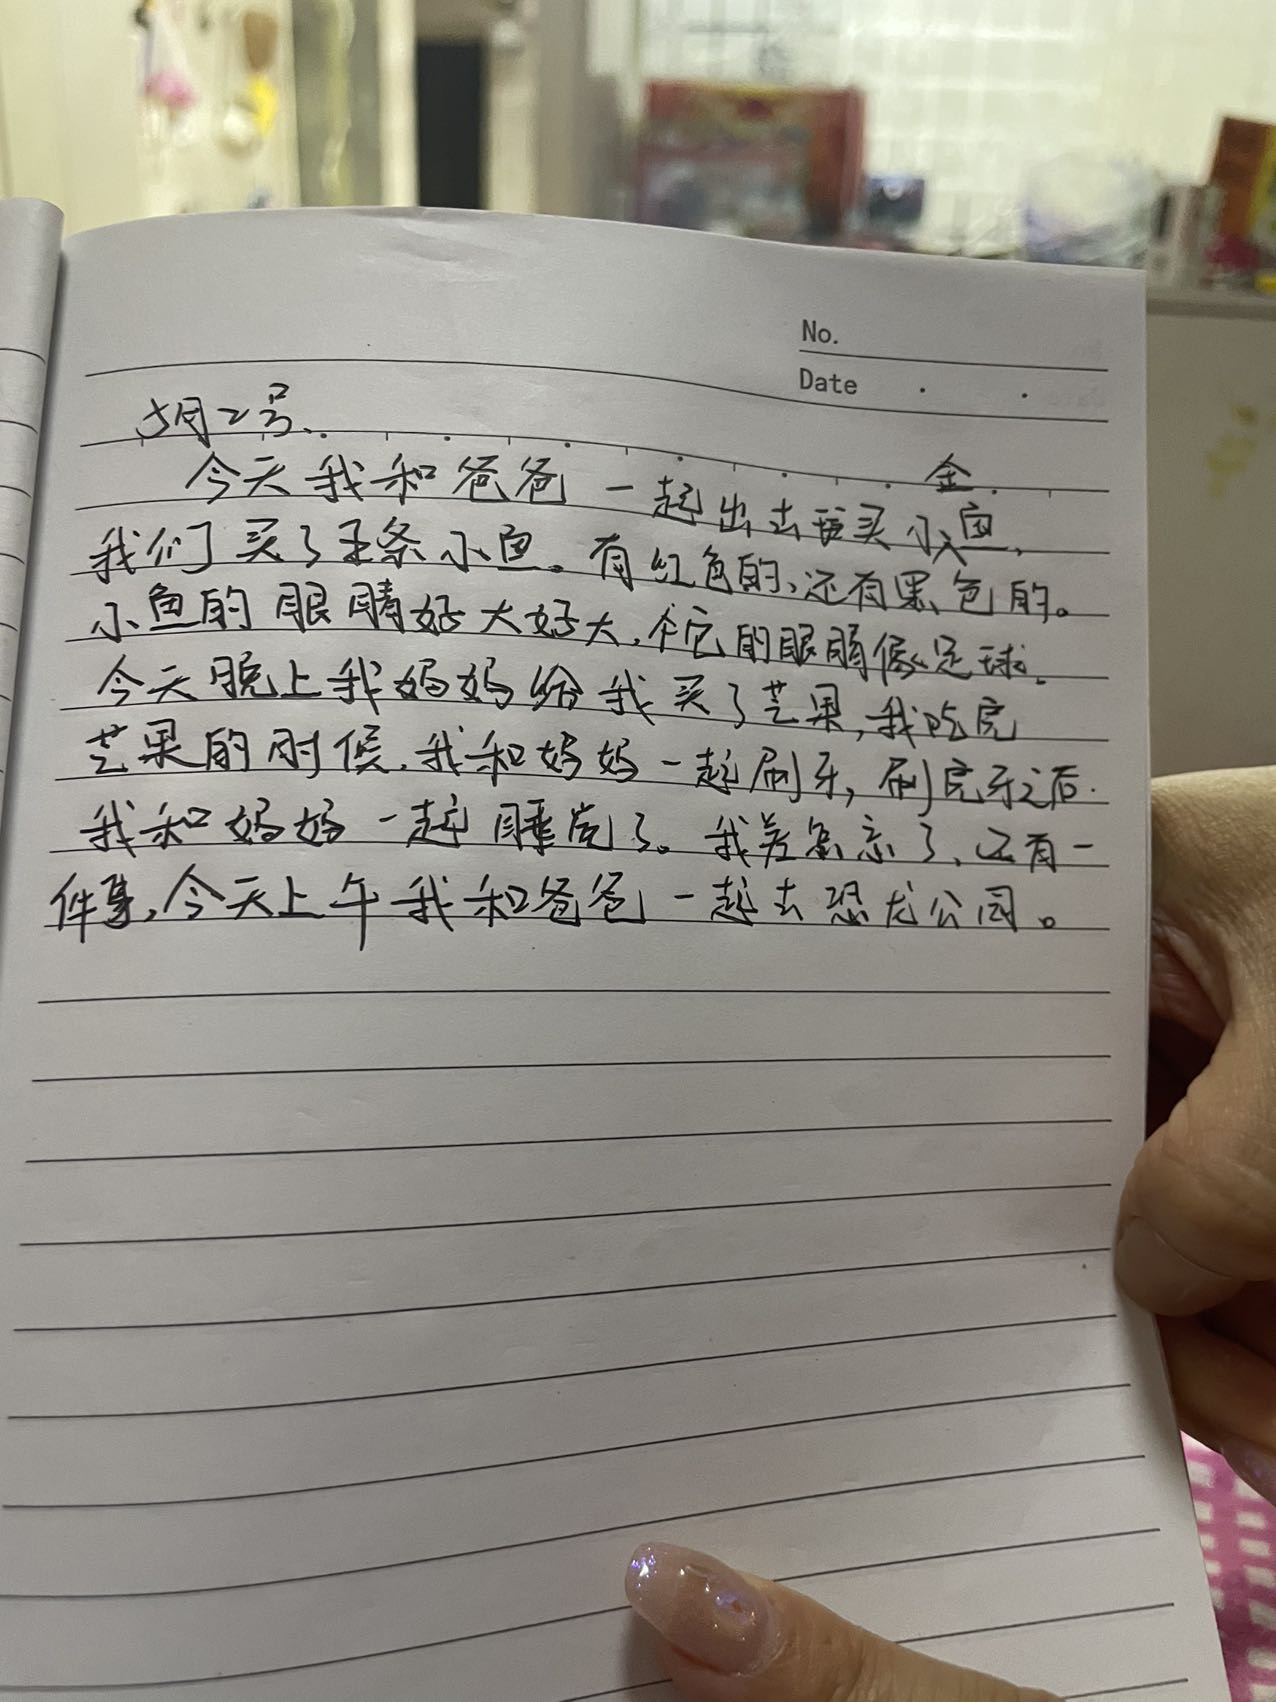 No.
Date
5月2号、
今天我和爸爸一起出去要买小金鱼,
我们买了五条小鱼。有红色的、还有黑色的。
小鱼的眼睛好大好大,它的眼睛像足球。
今天晚上我妈妈给我买了芒果,我吃完
芒果的时候,我和妈妈一起刷牙,刷完牙之后.
我和妈妈一起睡觉了。我差点忘了、还有一
件事,今天上午我和爸爸一起去恐龙公园。